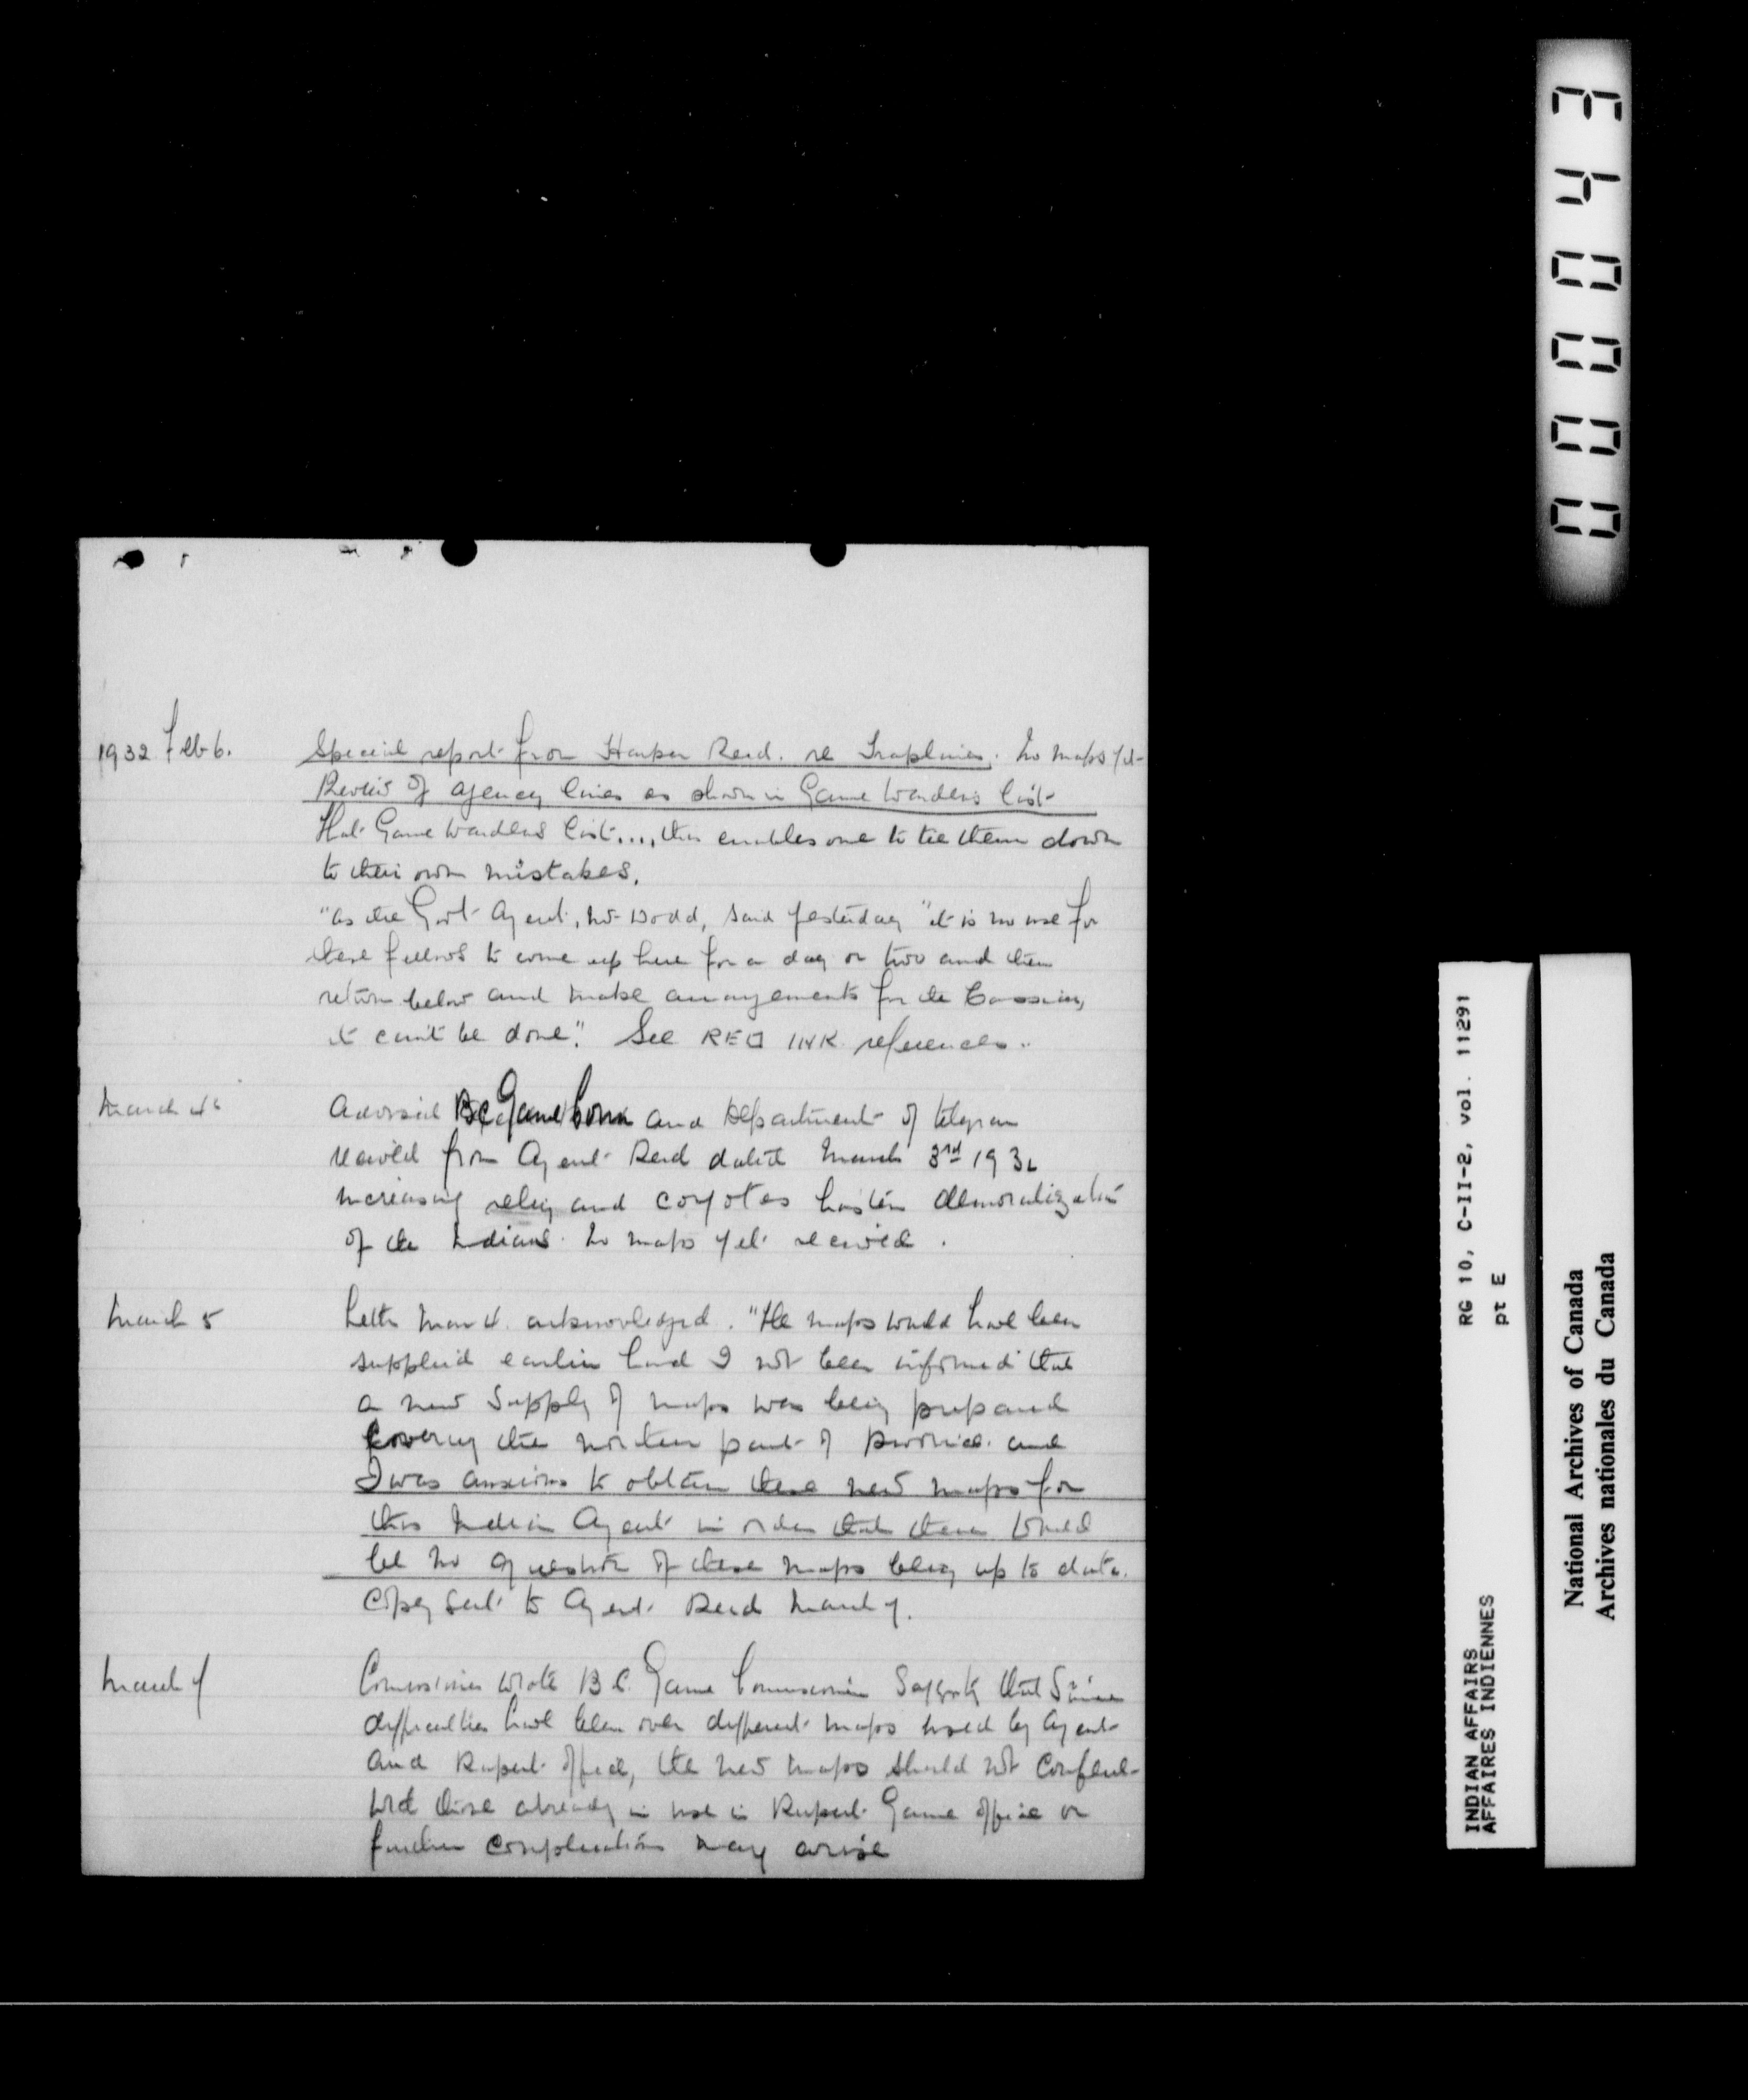 1932 Feb 6. Special report from Harper Reed. re Traplines. No maps yet
Review of agency lines as shown in Game Wardens list
That Game Wardens list...., this enables one to tie them down
to their own mistakes.
"as the Govt Agent, Mr Dodd, said yesterday "it is no use for
these fellows to come up here for a day or two and then
return below and make arrangements for the Cassiar,
it can't be done". See RED INK references.
March 4 Advised BC Game Comm and Department of telegram
received from Agent Reed dated March 3rd 1932
increasing and coyotes hasten demoralization
of the Indians. No maps yet received.
March 5 Letter Mar 4. acknowledged. "The maps would have been
supplied earlier had I not been informed that
a new supply of maps was being prepared
covering the northern part of province and
I was anxious to obtain these new maps for
this Indian Agent in order that there would
be no question of these maps being up to date.
Copy sent to Agent Reed March 7.
March 7 Commissioner wrote B.C. Game Commissioner that since
difficulties have been over different maps used by Agent
and Rupert office, the new maps should not conflict
with those already in use in Rupert Game office or
further complications may arise
000043
RG 10, C-II-2, vol. 11291
pt E
INDIAN AFFAIRS
AFFAIRES INDIENNES
National Archives of Canada
Archives nationales du Canada